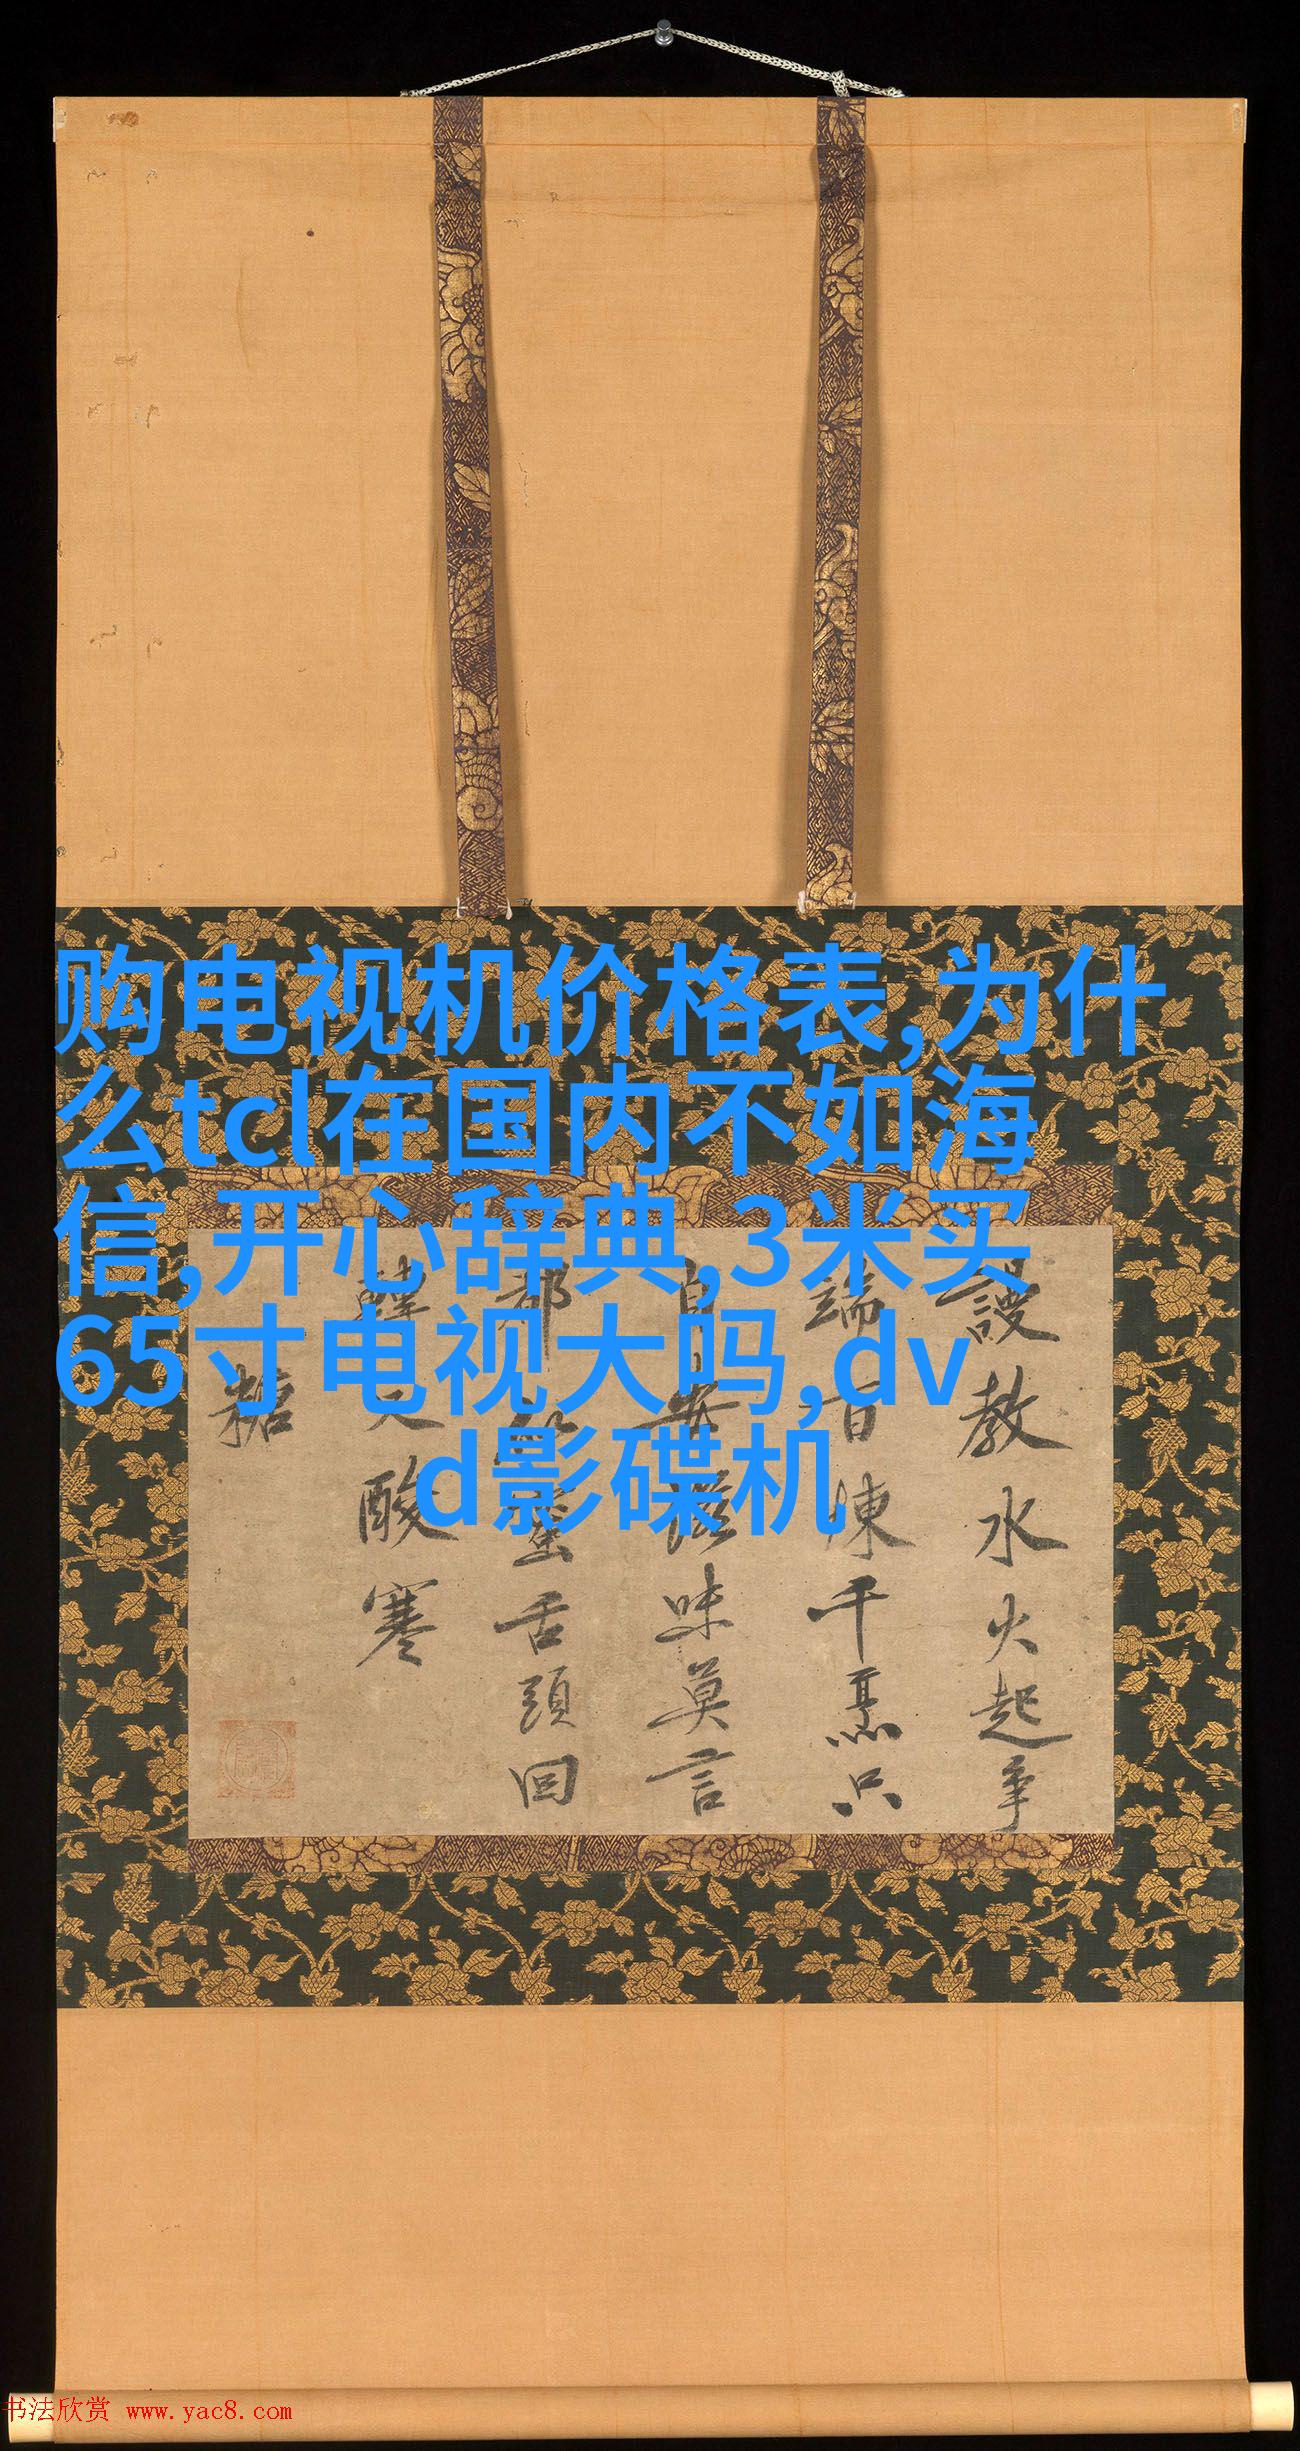 购电视机价格表,为什
么tcl在国内不如海
信,开心辞典,3米买
65寸电视大吗,dv
d影碟机
謾教水火起爭
端百煉千烹只
自滋味莫言
都蜜舌頭回
又酸寒
糖
书法欣赏 www.yac8.com